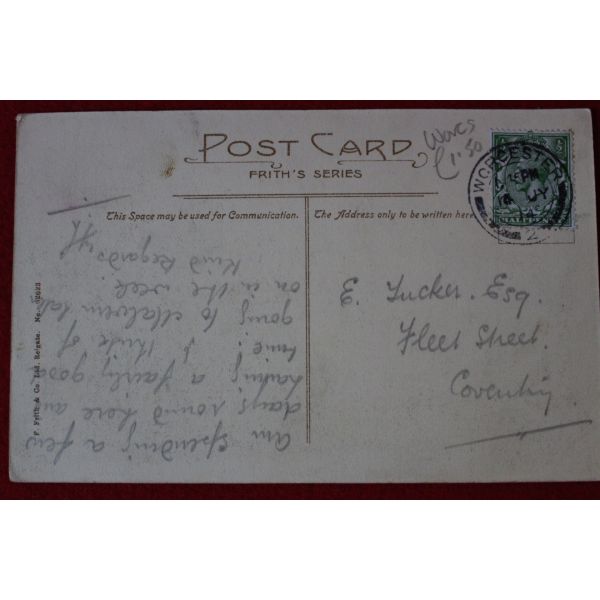 POST CARD
FRITH'S SERIES
Worcs
£1.50
WORCESTER
2
This Space may be used for Communication.
The Address only to be written here
E. Tucker. Esq.
Fleet Street.
Coventry
Am spending a few
days round here and
having a fairly good
time. I think of
going to Malvern later
on in the week.
Kind Regards
F. Frith & Co. Ltd. Reigate. No.